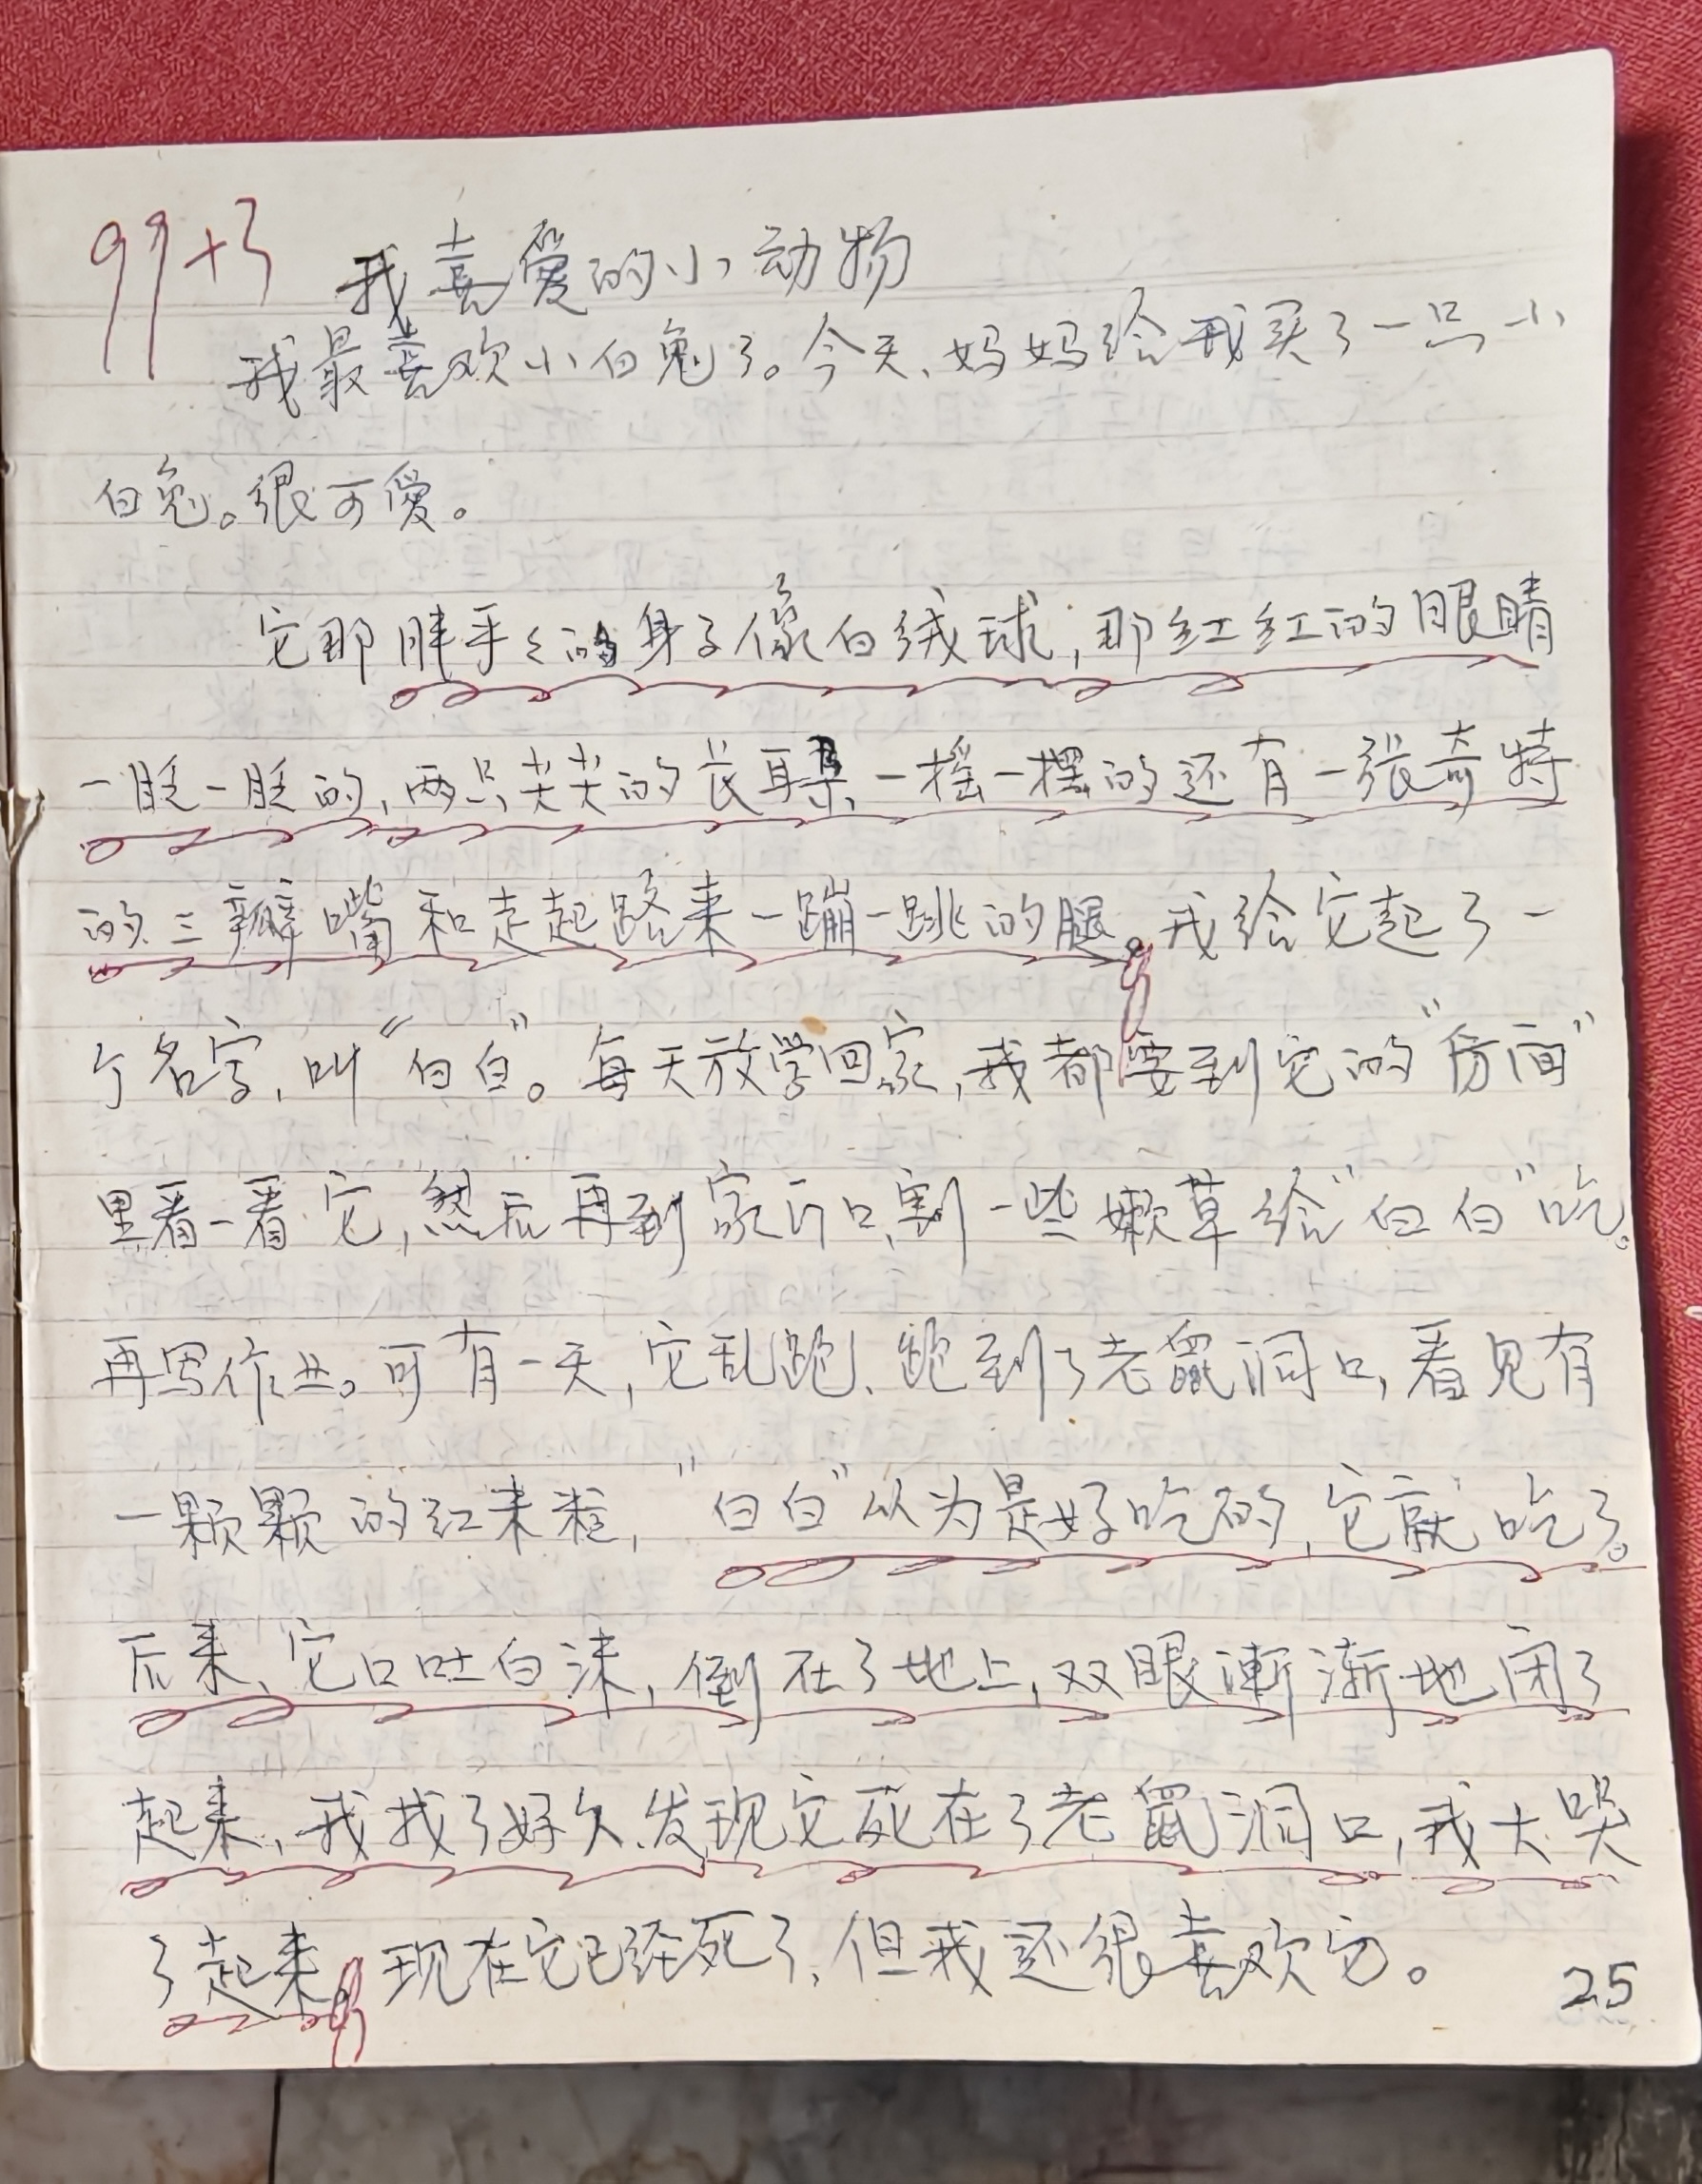 99+3
我喜爱的小动物
我最喜欢小白兔了。今天、妈妈给我买了一只小
白兔。很可爱。
它那胖乎々的身子像白绒球,那红红的眼睛
一眨一眨的,两只尖尖的长耳朵、一摇一摆的还有一张奇特
的三瓣嘴和走起路来一蹦一跳的腿。我给它起了一
个名字,叫“白白”。每天放学回家,我都要到它的“房间”
里看一看它,然后再到家门口割一些嫩草给“白白”吃。
再写作业。可有一天,它乱跑、跑到了老鼠洞口,看见有
一颗颗的红米粒,“白白”以为是好吃的,它就吃了。
后来、它口吐白沫,倒在了地上,双眼渐渐地闭了
起来,我找了好久、发现它死在了老鼠洞口,我大哭
了起来。现在它已经死了,但我还很喜欢它。
25